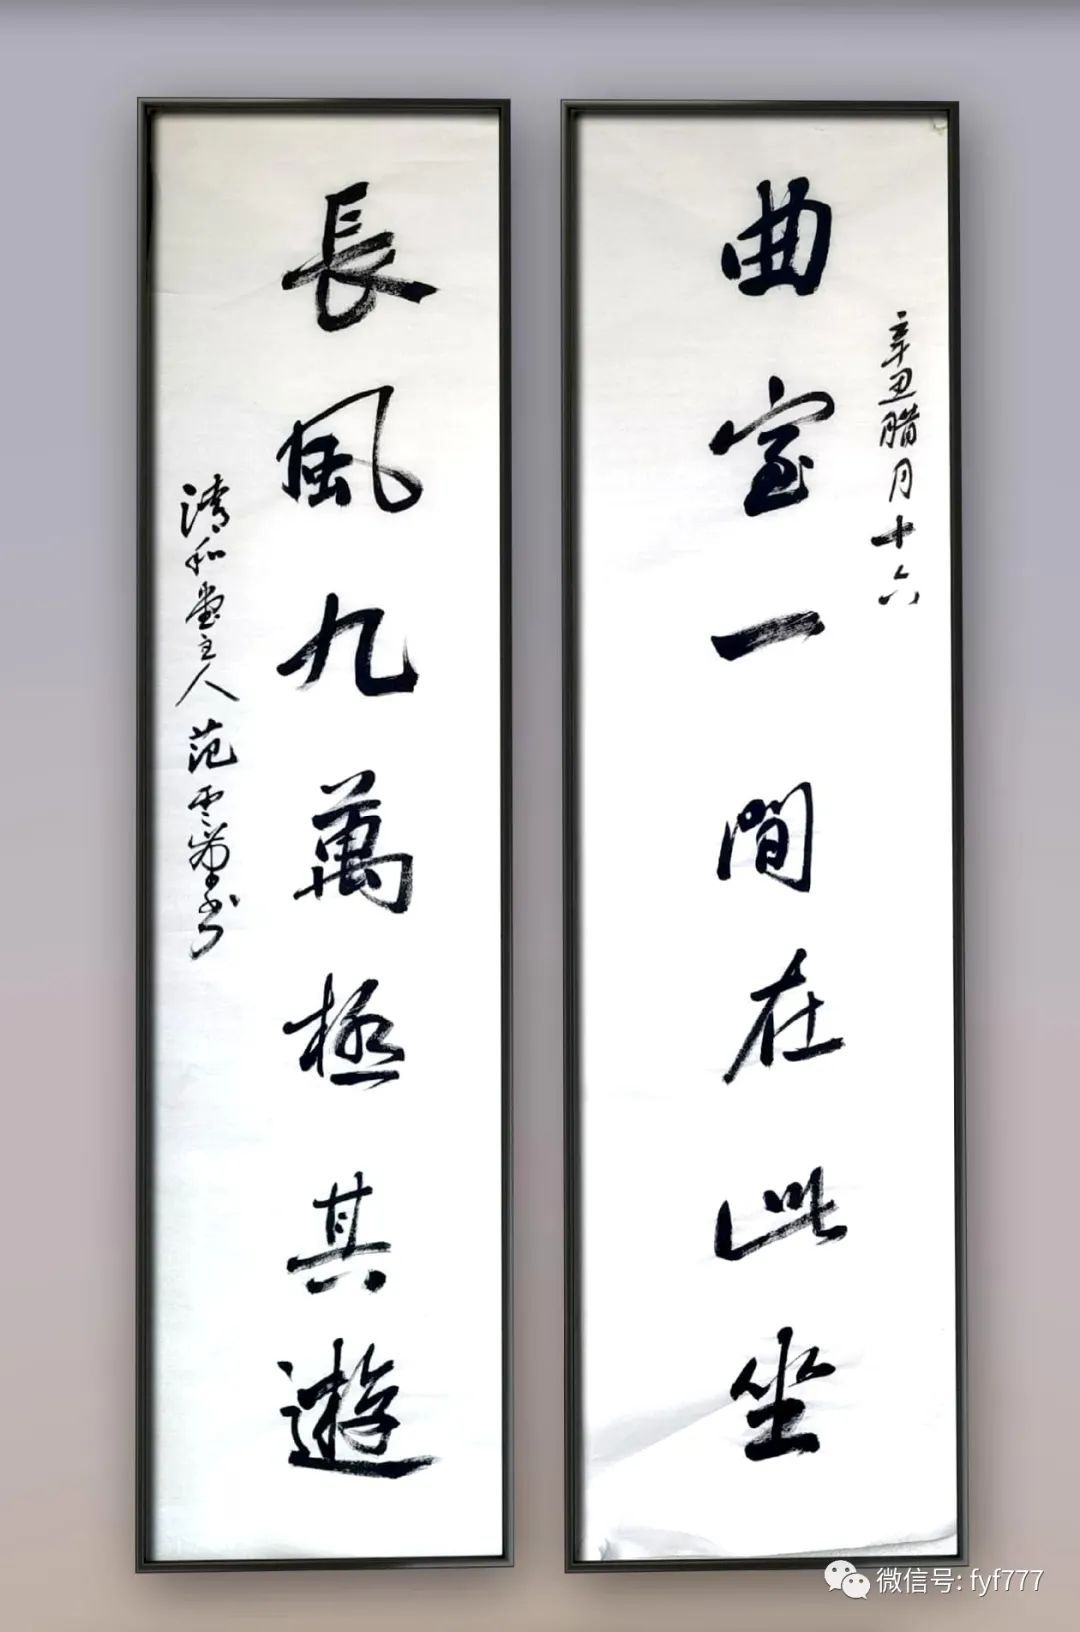 辛丑腊月十六
曲室一間在此坐
長風九萬極其遊
清和堂主人范雲
微信号: fyf777